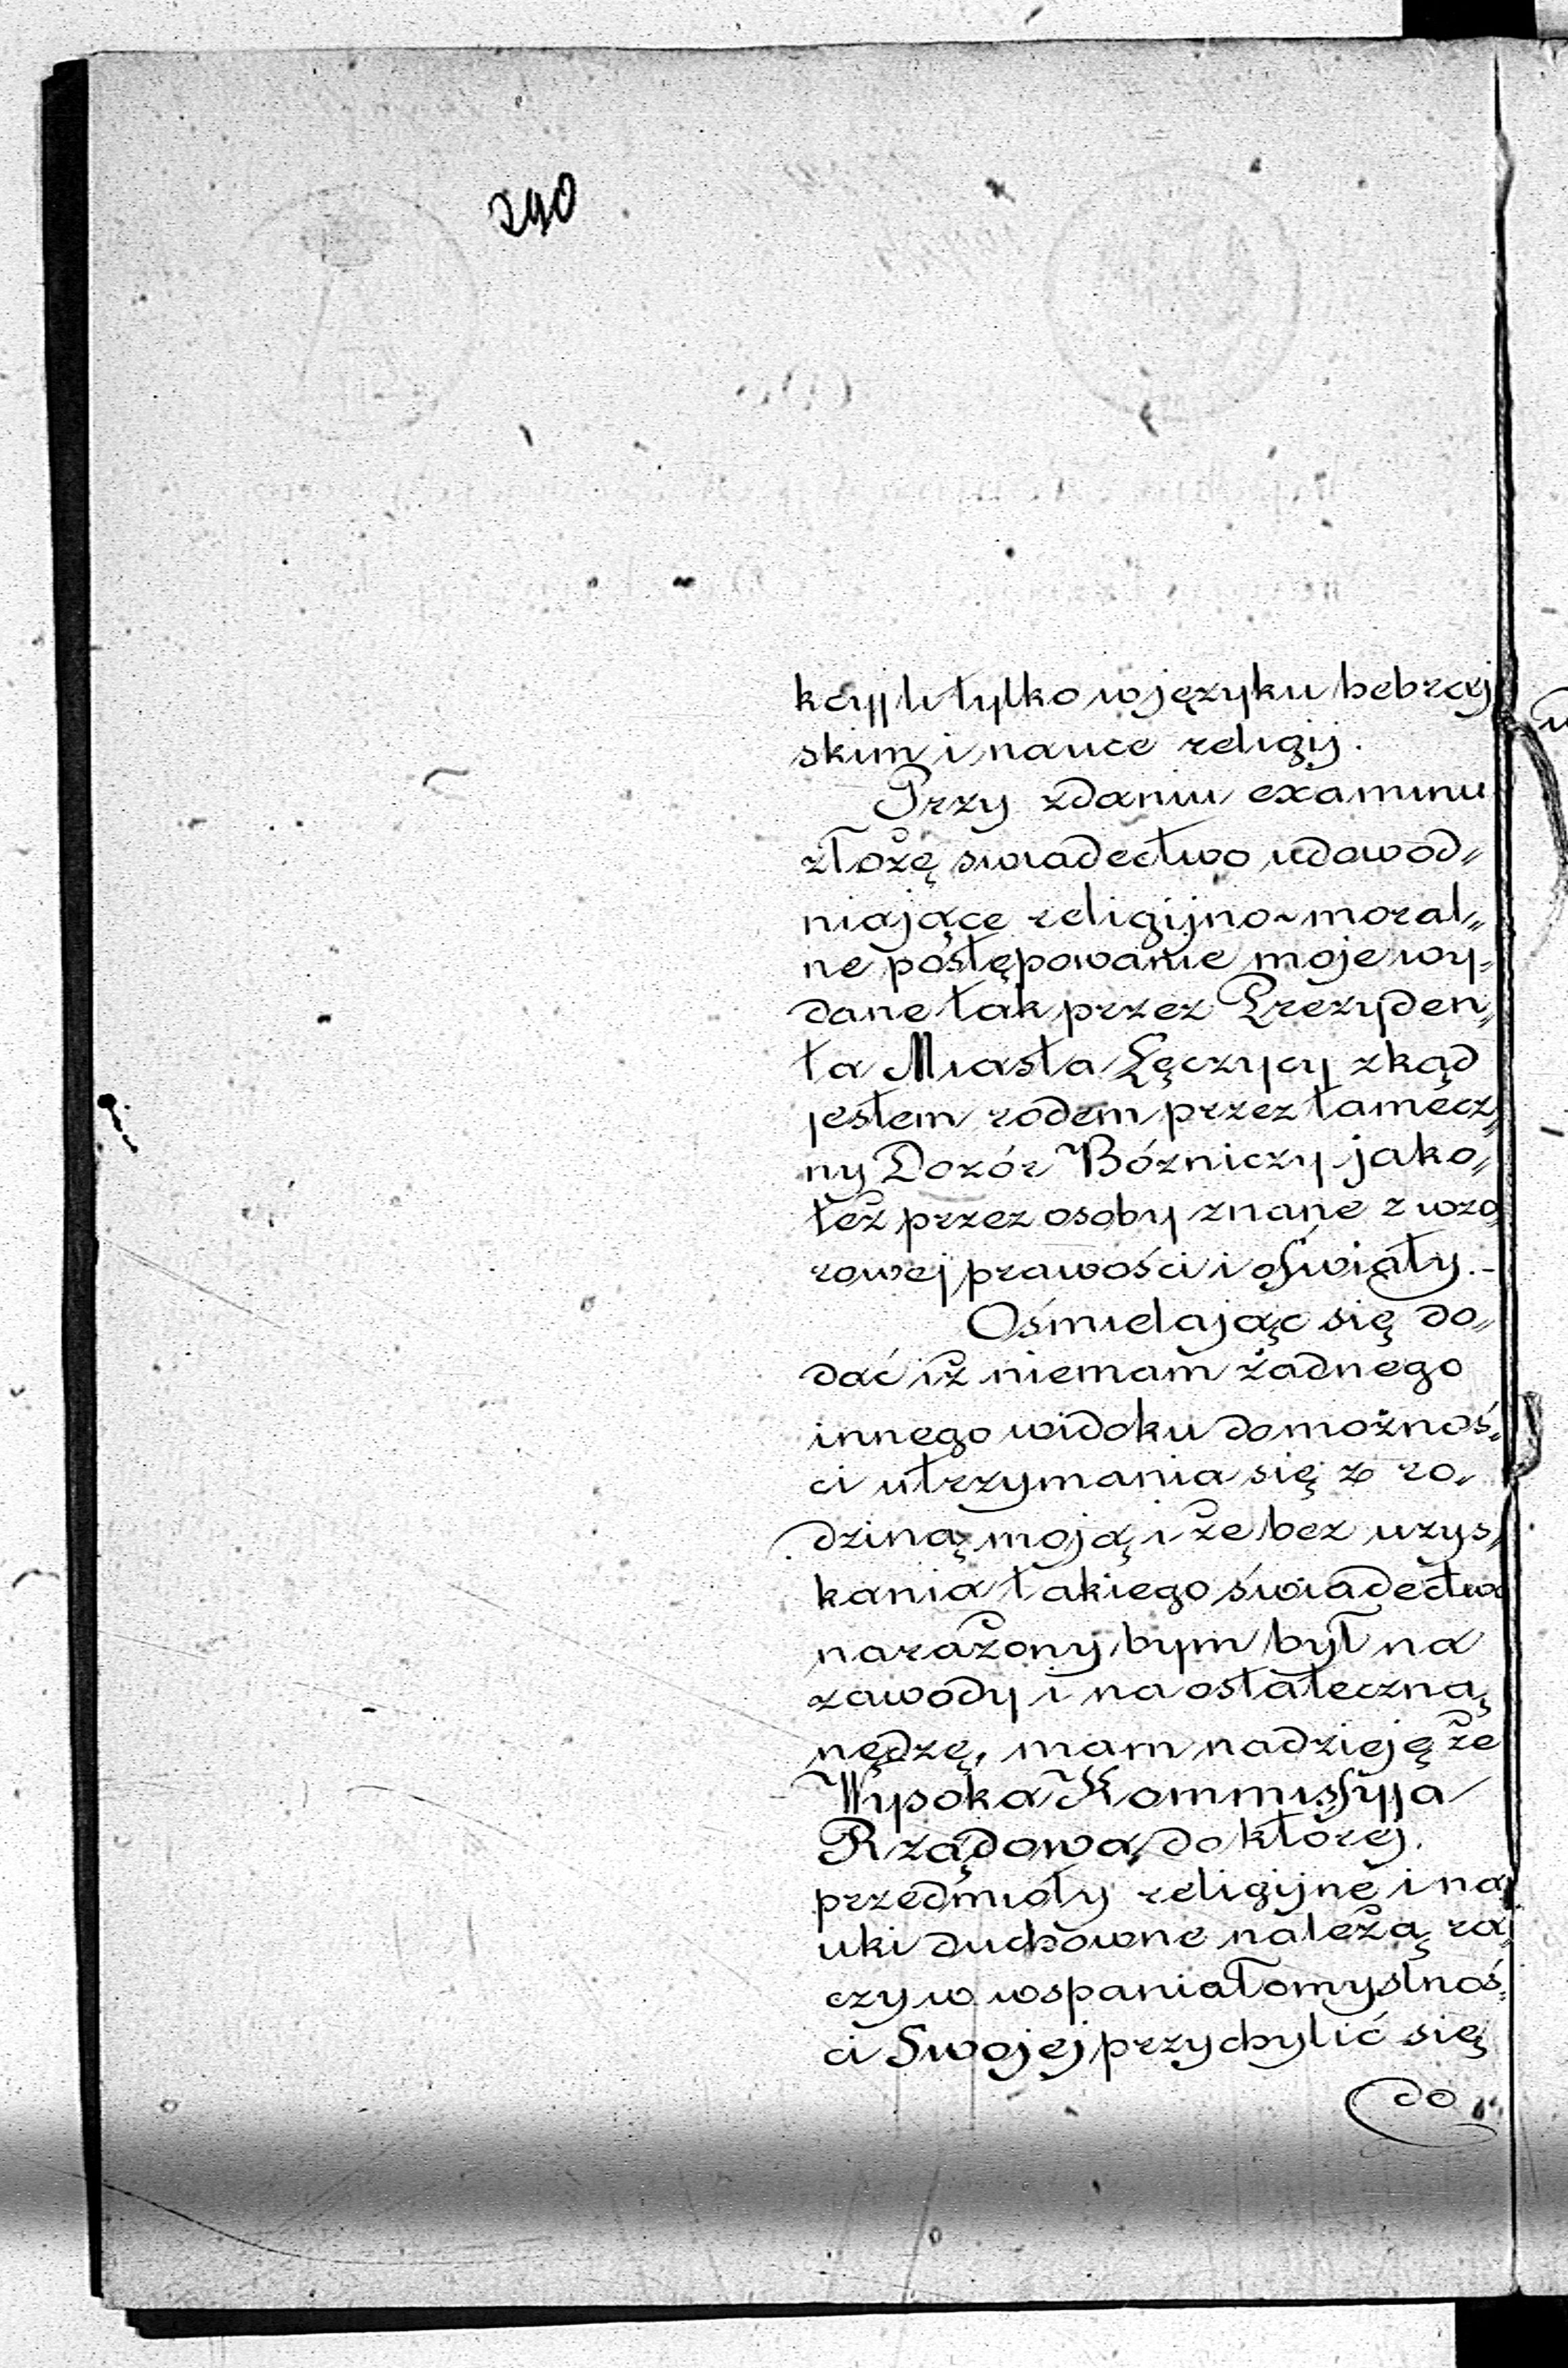 240
kcyj li tylko w języku hebraj
skim i nauce religij.
Przy zdaniu examinu
złożę swiadectwo udowod„
niające religijno-moral„
ne postępowanie moje wy„
dane tak przez Prezyden„
ta Miasta Łęczycy zkąd
jestem rodem przez tamecz„
ny Dozór Bózniczy jako„
też przez osoby znane z wzo
rowej prawości i oświaty.-
Ośmielając się do„
dać iż niemam żadnego
innego widoku do możnoś„
ci utrzymania się z ro„
dziną moją i że bez uzys„
kania takiego świadectwa
narażony bym był na
zawody i na ostateczną
nędzę, mam nadzieję że
Wysoka Kommissyja
Rządowa do której
przedmioty religijne i na
uki duchowne należą ra„
czy w wspaniałomyslnoś„
ci Swojej przychylić się
do